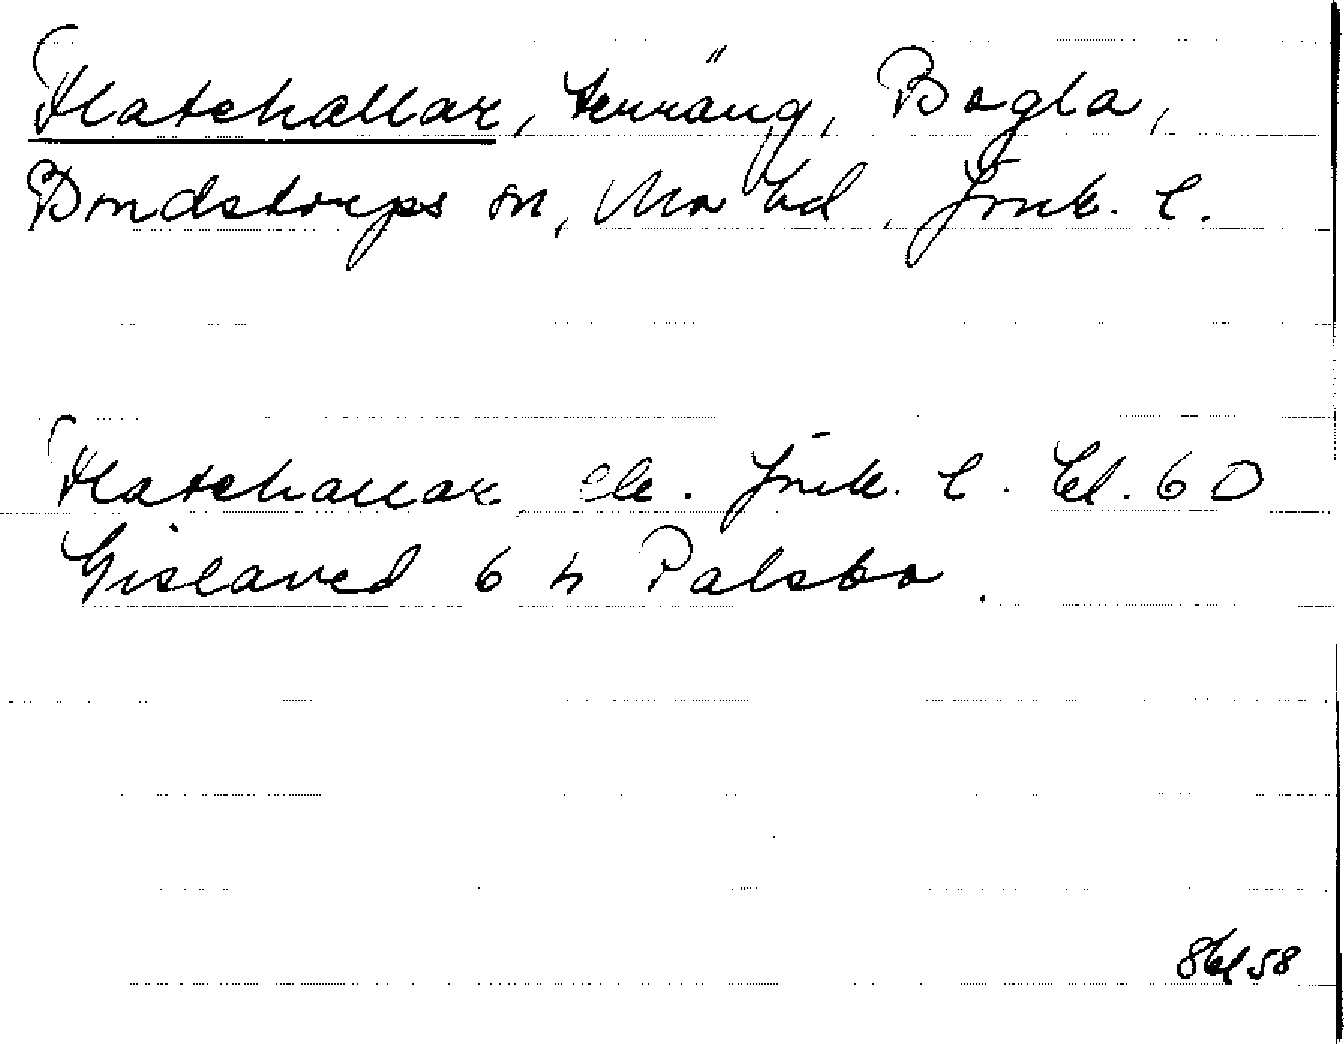 Flatehallar, terräng, Bogla,
Bondstorps sn, Mo hd, Jönk. l.
Flatehallar Ek. Jönk. l. bl. 6 D
Gislaved 6 h Palsbo.
8bl58